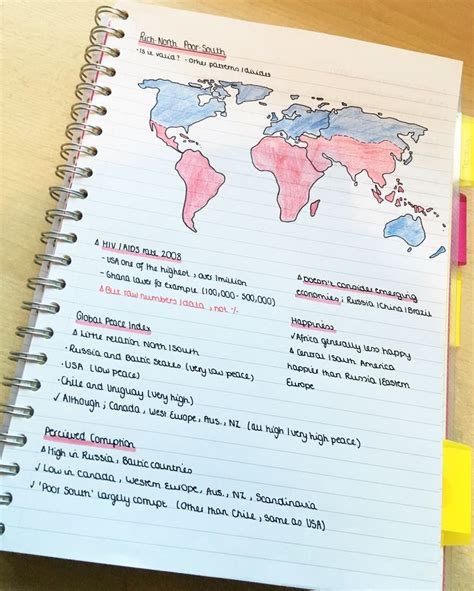 Rich North Poor South
· Is it valid? · Other patterns / divides
Δ HIV / AIDS rate 2008
- USA one of the highest, over 1 million
- Ghana lower for example (100,000 - 500,000)
Δ But raw numbers / data, not %
Δ Doesn't consider emerging
economies; Russia / China / Brazil
Global Peace Index
Δ Little relation North / South
· Russia and Baltic States (very low peace)
· USA (low peace)
· Chile and Uruguay (very high)
✓ Although; Canada, West Europe, Aus., NZ (all high / very high peace)
Happiness
✓ Africa generally less happy
Δ Central / South America
happier than Russia / Eastern
Europe
Perceived Corruption
Δ High in Russia, Baltic countries
✓ Low in Canada, Western Europe, Aus., NZ, Scandinavia
✓ 'Poor South' largely corrupt (other than Chile, same as USA)